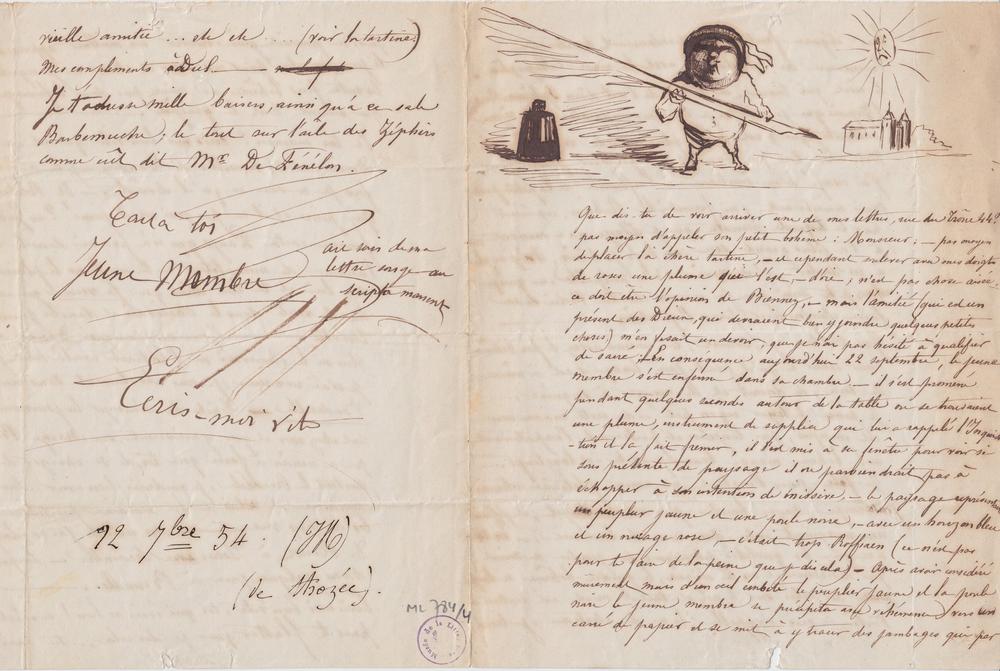 vieille amitié ... etc etc .... (voir la tartine)
Mes compliments à Dul.
Je t'adresse mille baisers, ainsi qu'à ce sale
Barbemuche; le tout sur l'aile des Zéphirs
comme eût dit Mr De Fénélon.
Tout à toi
Jeune Membre
aie soin de ma
lettre songe au
scripta manent
Ecris-moi vite
92 7bre 54. (JM)
(de Thozée).
ML 784/4
Que dis-tu de voir arriver une de mes lettres, rue du Trône 44?
pas moyen d'appeler son petit bohême: Monsieur; — pas moyen
de placer la chère tartine, — et cependant enlever avec mes doigts
de roses une plume qui l'est, — d'oie, n'est pas chose aisée,
ce doit être l'opinion de — mais l'amitié (qui est un
présent des Dieux, qui devraient bien y joindre quelques petites
choses) m'en faisait un devoir, que je n'ai pas hésité à qualifier
de sacré. En conséquence aujourd'hui 22 septembre, le jeune
membre s'est enfermé dans sa chambre — il s'est promené
pendant quelques secondes autour de la table où se trouvaient
une plume, instrument de supplice qui lui a rappelé l'Inquisi-
-tion et l'a fait frémir, il s'est mis à sa fenêtre pour voir si
sous prétexte de paysage il ne parviendrait pas à
échapper à son intention de missive, — le paysage représentait
un peuplier jaune et une poule noire, — avec un horizon bleu
et un nuage rose, — c'était trop Roffiaen (ce n'est pas
pour te faire de la peine que je dis cela) — Après avoir considéré
mûrement mais d'un oeil embêté le peuplier jaune et la poule
noire le jeune membre se précipita avec véhémence vers un
carré de papier et se mit à y tracer des jambages qui par